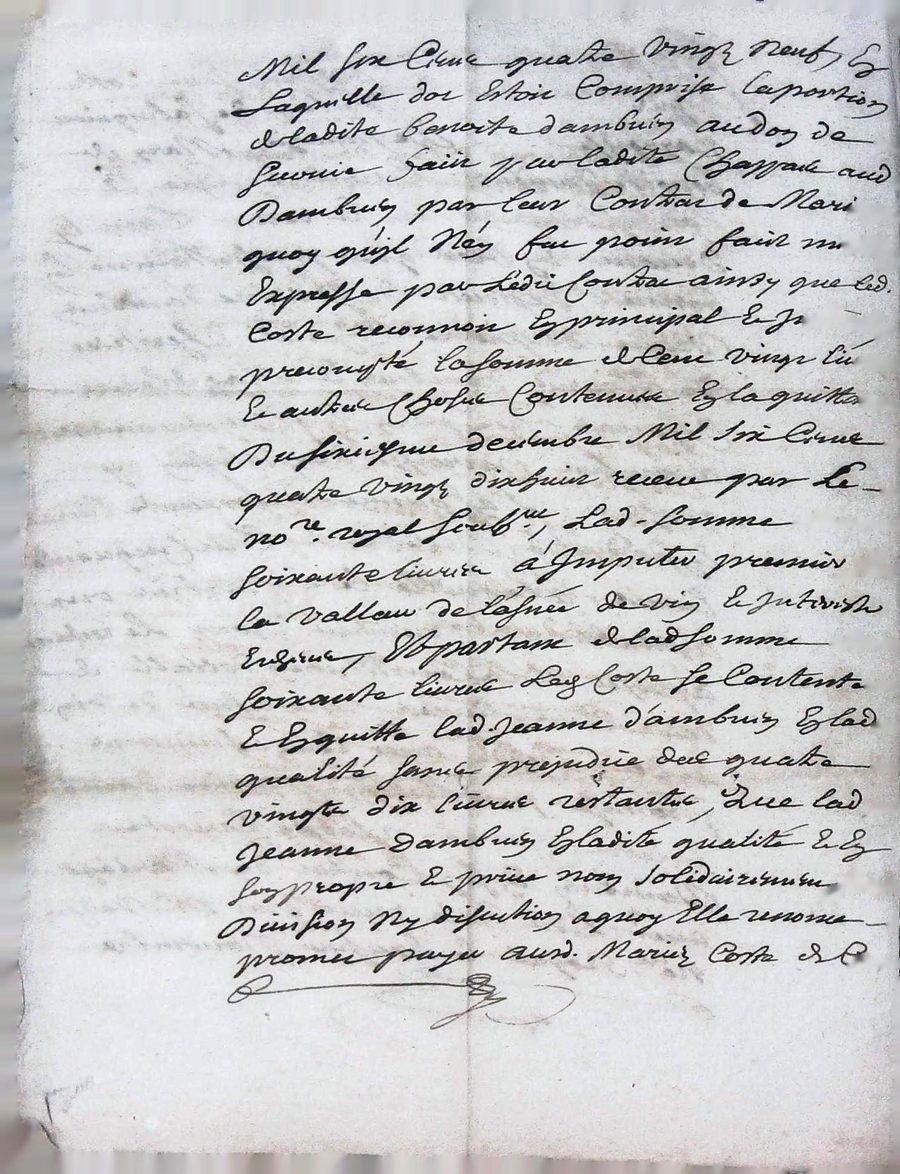 Mil six Cens quatre vingt neuf, En
Laquelle dot Estoit Comprise la portion
de ladite benoite dambuin au don de
survie fait par ladite Chappuis aud
Dambuin par leur Contrat de Mari
quoy quil N'en fut point fait m
Expresse par Ledit Contrat ainsy que led.
Coste reconnoit En principal Et
precompté la somme de Cent vingt
Et autres Choses Contenues En la quitta
Du sixiesme decembre Mil six Cens
quatre vingt dix huit receue par Le
nore. royal soubsne, Lad. somme
soixante livres à Imputer premier
la valleur de l'asnée de vin Et Interests
Et partant de lad somme
soixante livres Led Coste se Contente
Et En quitte lad. Jeanne d'ambuin En lad
qualité sans prejudice des quatre
vingts dix livres restantes, Que lad
Jeanne dambuin En ladite qualité Et En
son propre Et privé nom solidairement
Division Ny discution a quoy Elle renonce
promet payer aud. Coste